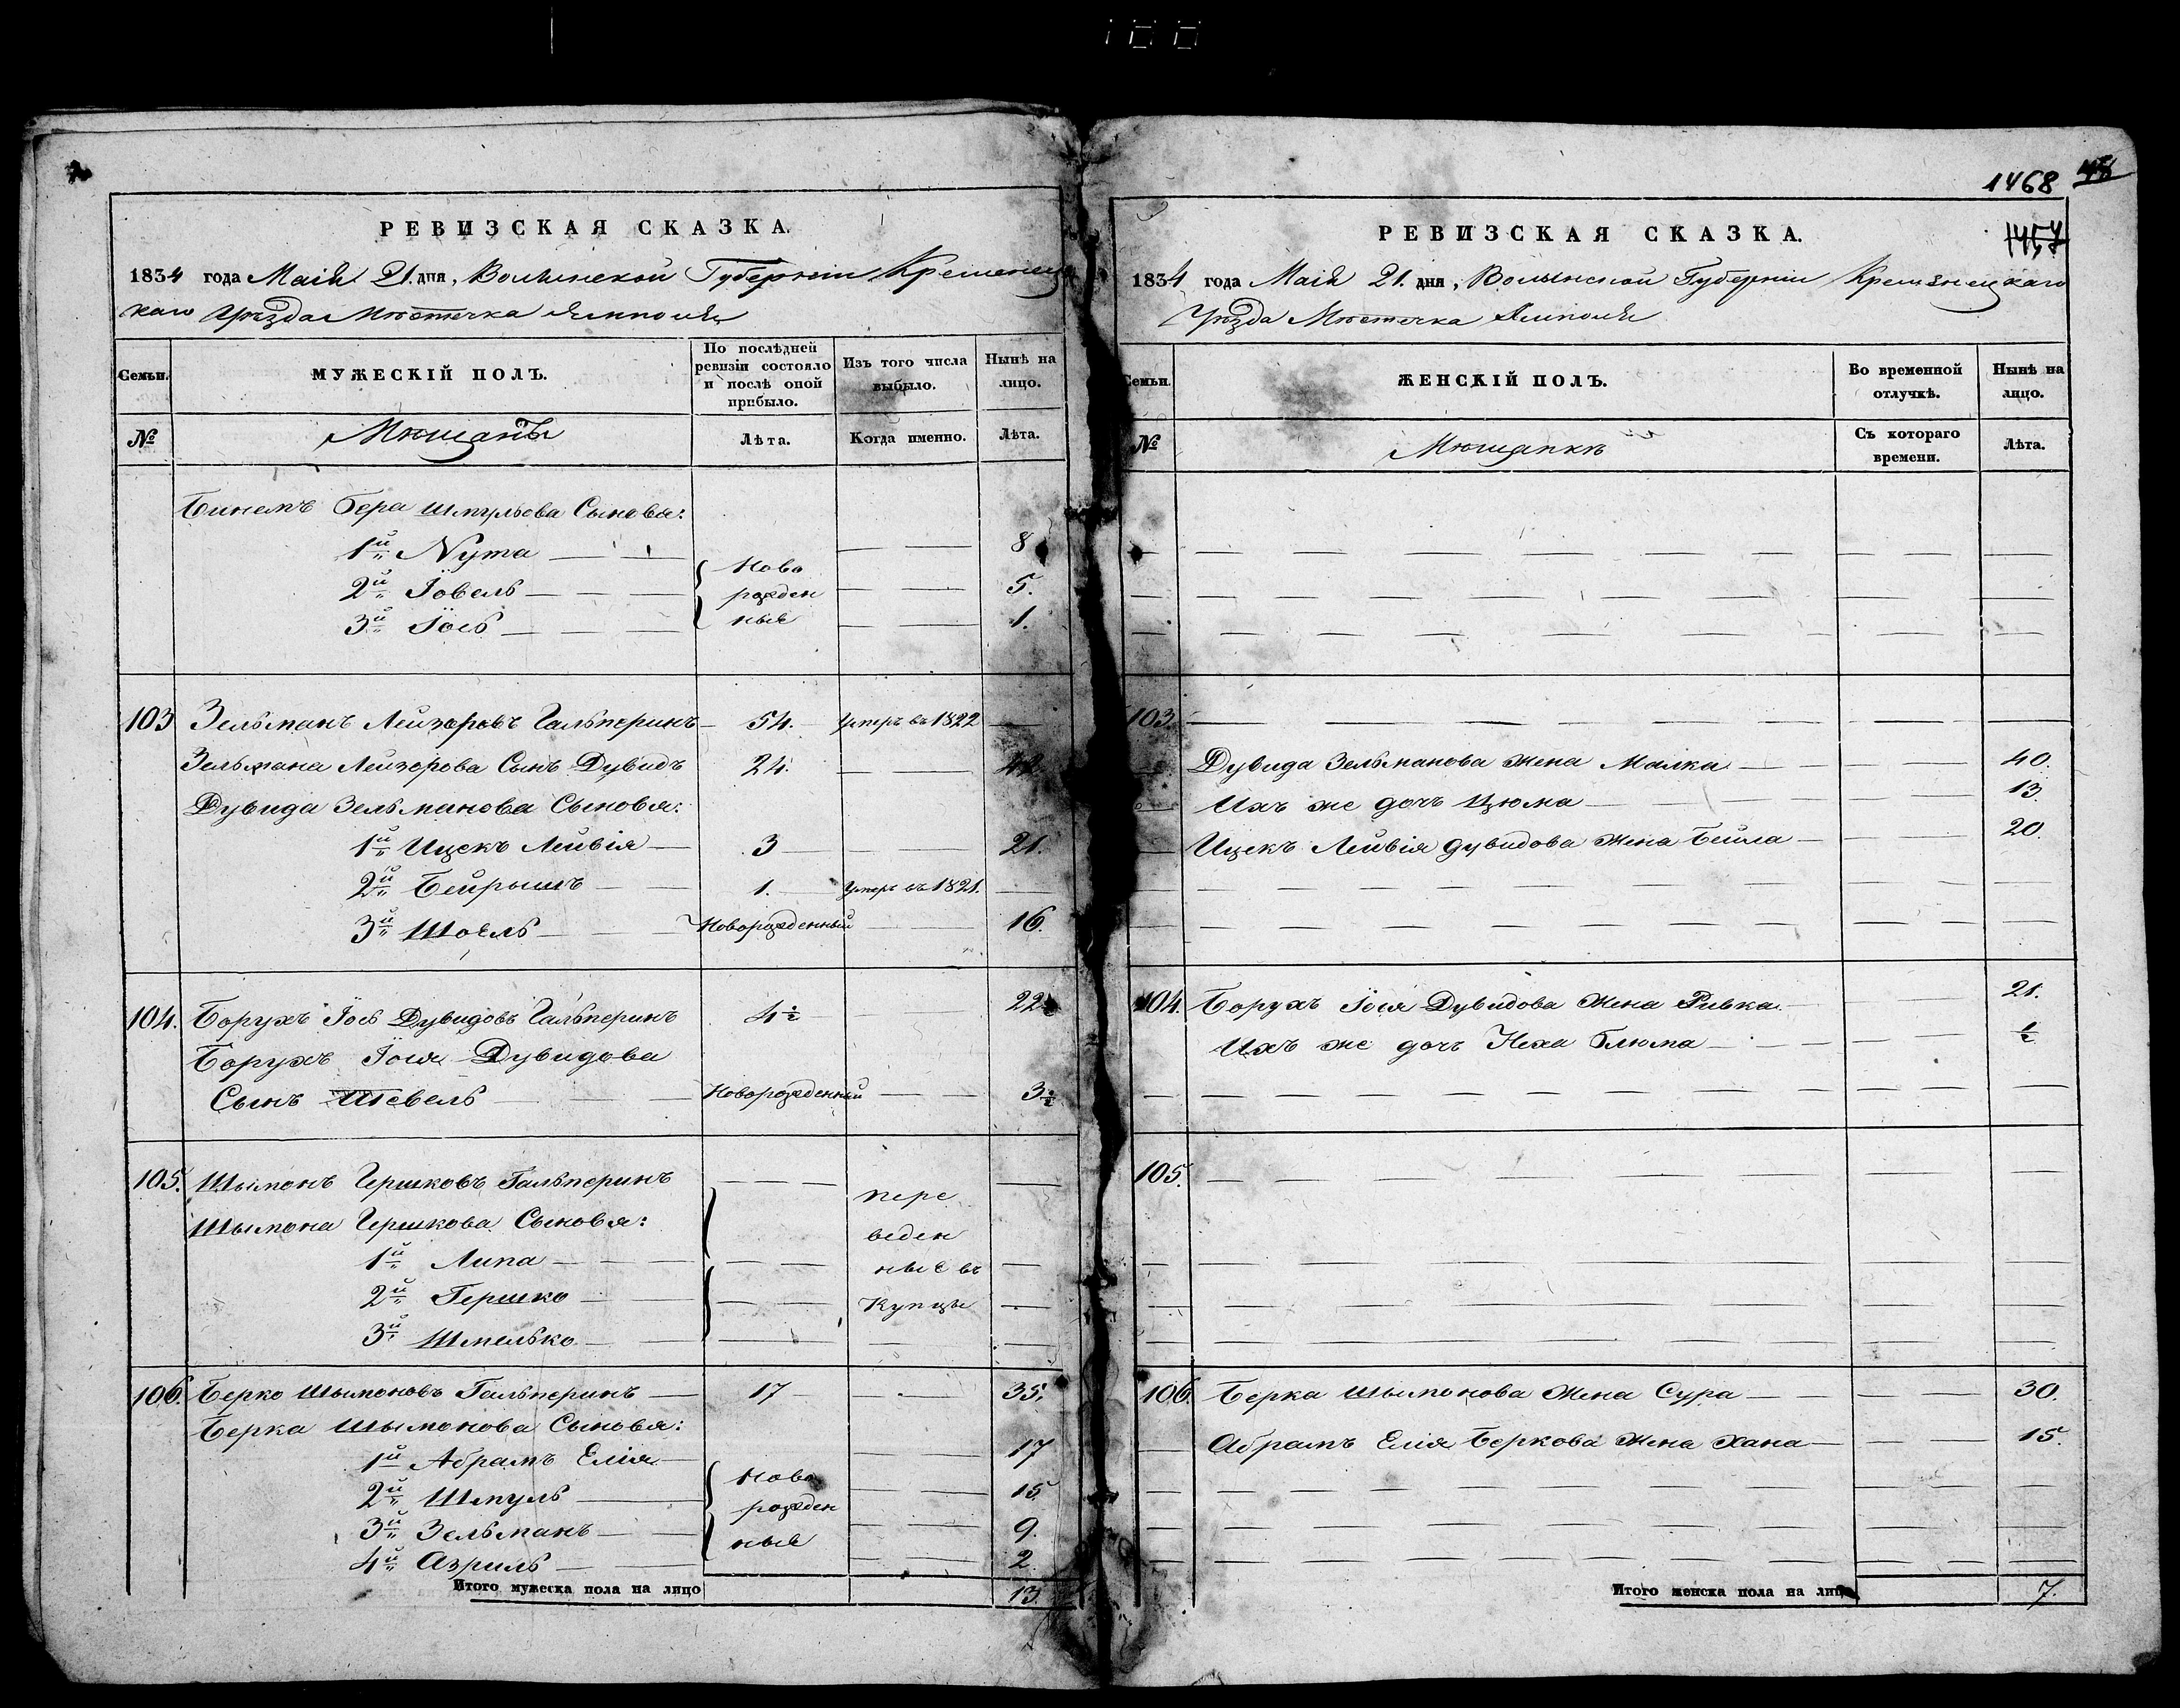 100
РЕВИЗСКАЯ СКАЗКА.
1834 года Маія 21. дня, Волынской Губерніи Кременец
каго Уѣзда Мѣстечка Ямполя
Семьи.
МУЖЕСКІЙ ПОЛЪ.
По послѣдней ревизіи состояло и послѣ оной прибыло.
Изъ того числа выбыло.
Нынѣ на лицо.
№
Мѣщанъ
Лѣта.
Когда именно.
Лѣта.
Бинемъ Бера Шмульова Сыновья:
1й Нута 8
2й Іовель 5.
3й Іось 1.
Ново
рожден
ные
103 Зельманъ Лейзоровъ Гальперинъ 54. Умеръ въ 1822
Зельмана Лейзорова Сынъ Дувидъ 24. 42
Дувида Зельманова Сыновья:
1й Ицекъ Лейвія 3 21.
2й Бейрышъ 1. Умеръ въ 1821.
3й Шоель Новорожденный 16.
104. Борухъ Іось Дувидовъ Гальперинъ 4½ 22½
Борухъ Іося Дувидова
Сынъ Шевель Новорожденный 3½
105. Шымонъ Гершковъ Гальперинъ
Шымона Гершкова Сыновья:
1й Липа
2й Гершко
3й Шмелько
пере
веден
ные въ
Купцы
106. Берко Шымоновъ Гальперинъ 17 35.
Берка Шымонова Сыновья:
1й Абрамъ Елія 17
2й Шмуль 15
3й Зельманъ 9.
4й Азриль 2
Ново
рожден
ные
Итого мужеска пола на лицо 13
1468
1457
РЕВИЗСКАЯ СКАЗКА.
1834 года Маія 21. дня, Волынской Губерніи Кременецкаго
Уѣзда Мѣстечка Ямполя
Семьи.
ЖЕНСКІЙ ПОЛЪ.
Во временной отлучкѣ.
Нынѣ на лицо.
№
Мѣщанкъ
Съ котораго времени.
Лѣта.
103.
Дувида Зельманова жена Малка 40.
Ихъ же дочь Цюма 13.
Ицекъ Лейвія Дувидова жена Бейла 20.
104. Борухъ Іося Дувидова жена Ривка 21.
Ихъ же дочь Неха Блюма ½
105.
106. Берка Шымонова жена Сура 30.
Абрамъ Елія Беркова жена Хана 15.
Итого женска пола на лицо 7.